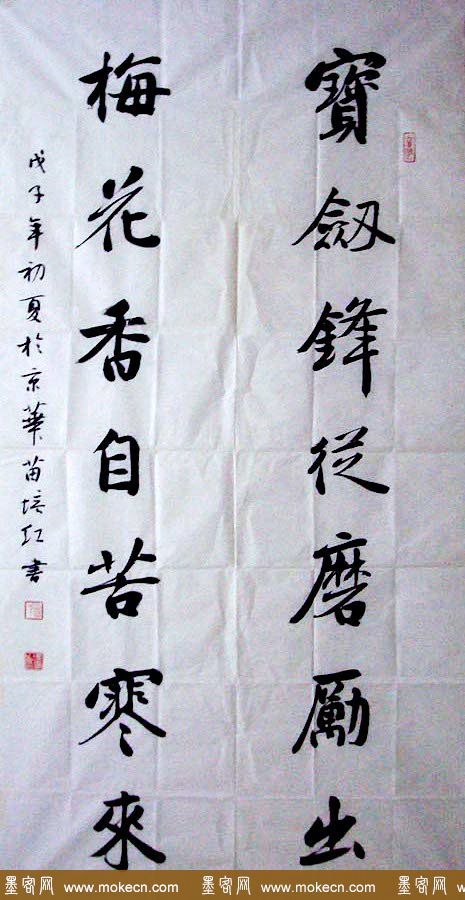 寶劔鋒從磨勵出
梅花香自苦寒來
戊子年初夏於京華苗培红書
墨客网 www.mokecn.com 墨客网 www.mokecn.com 墨客网